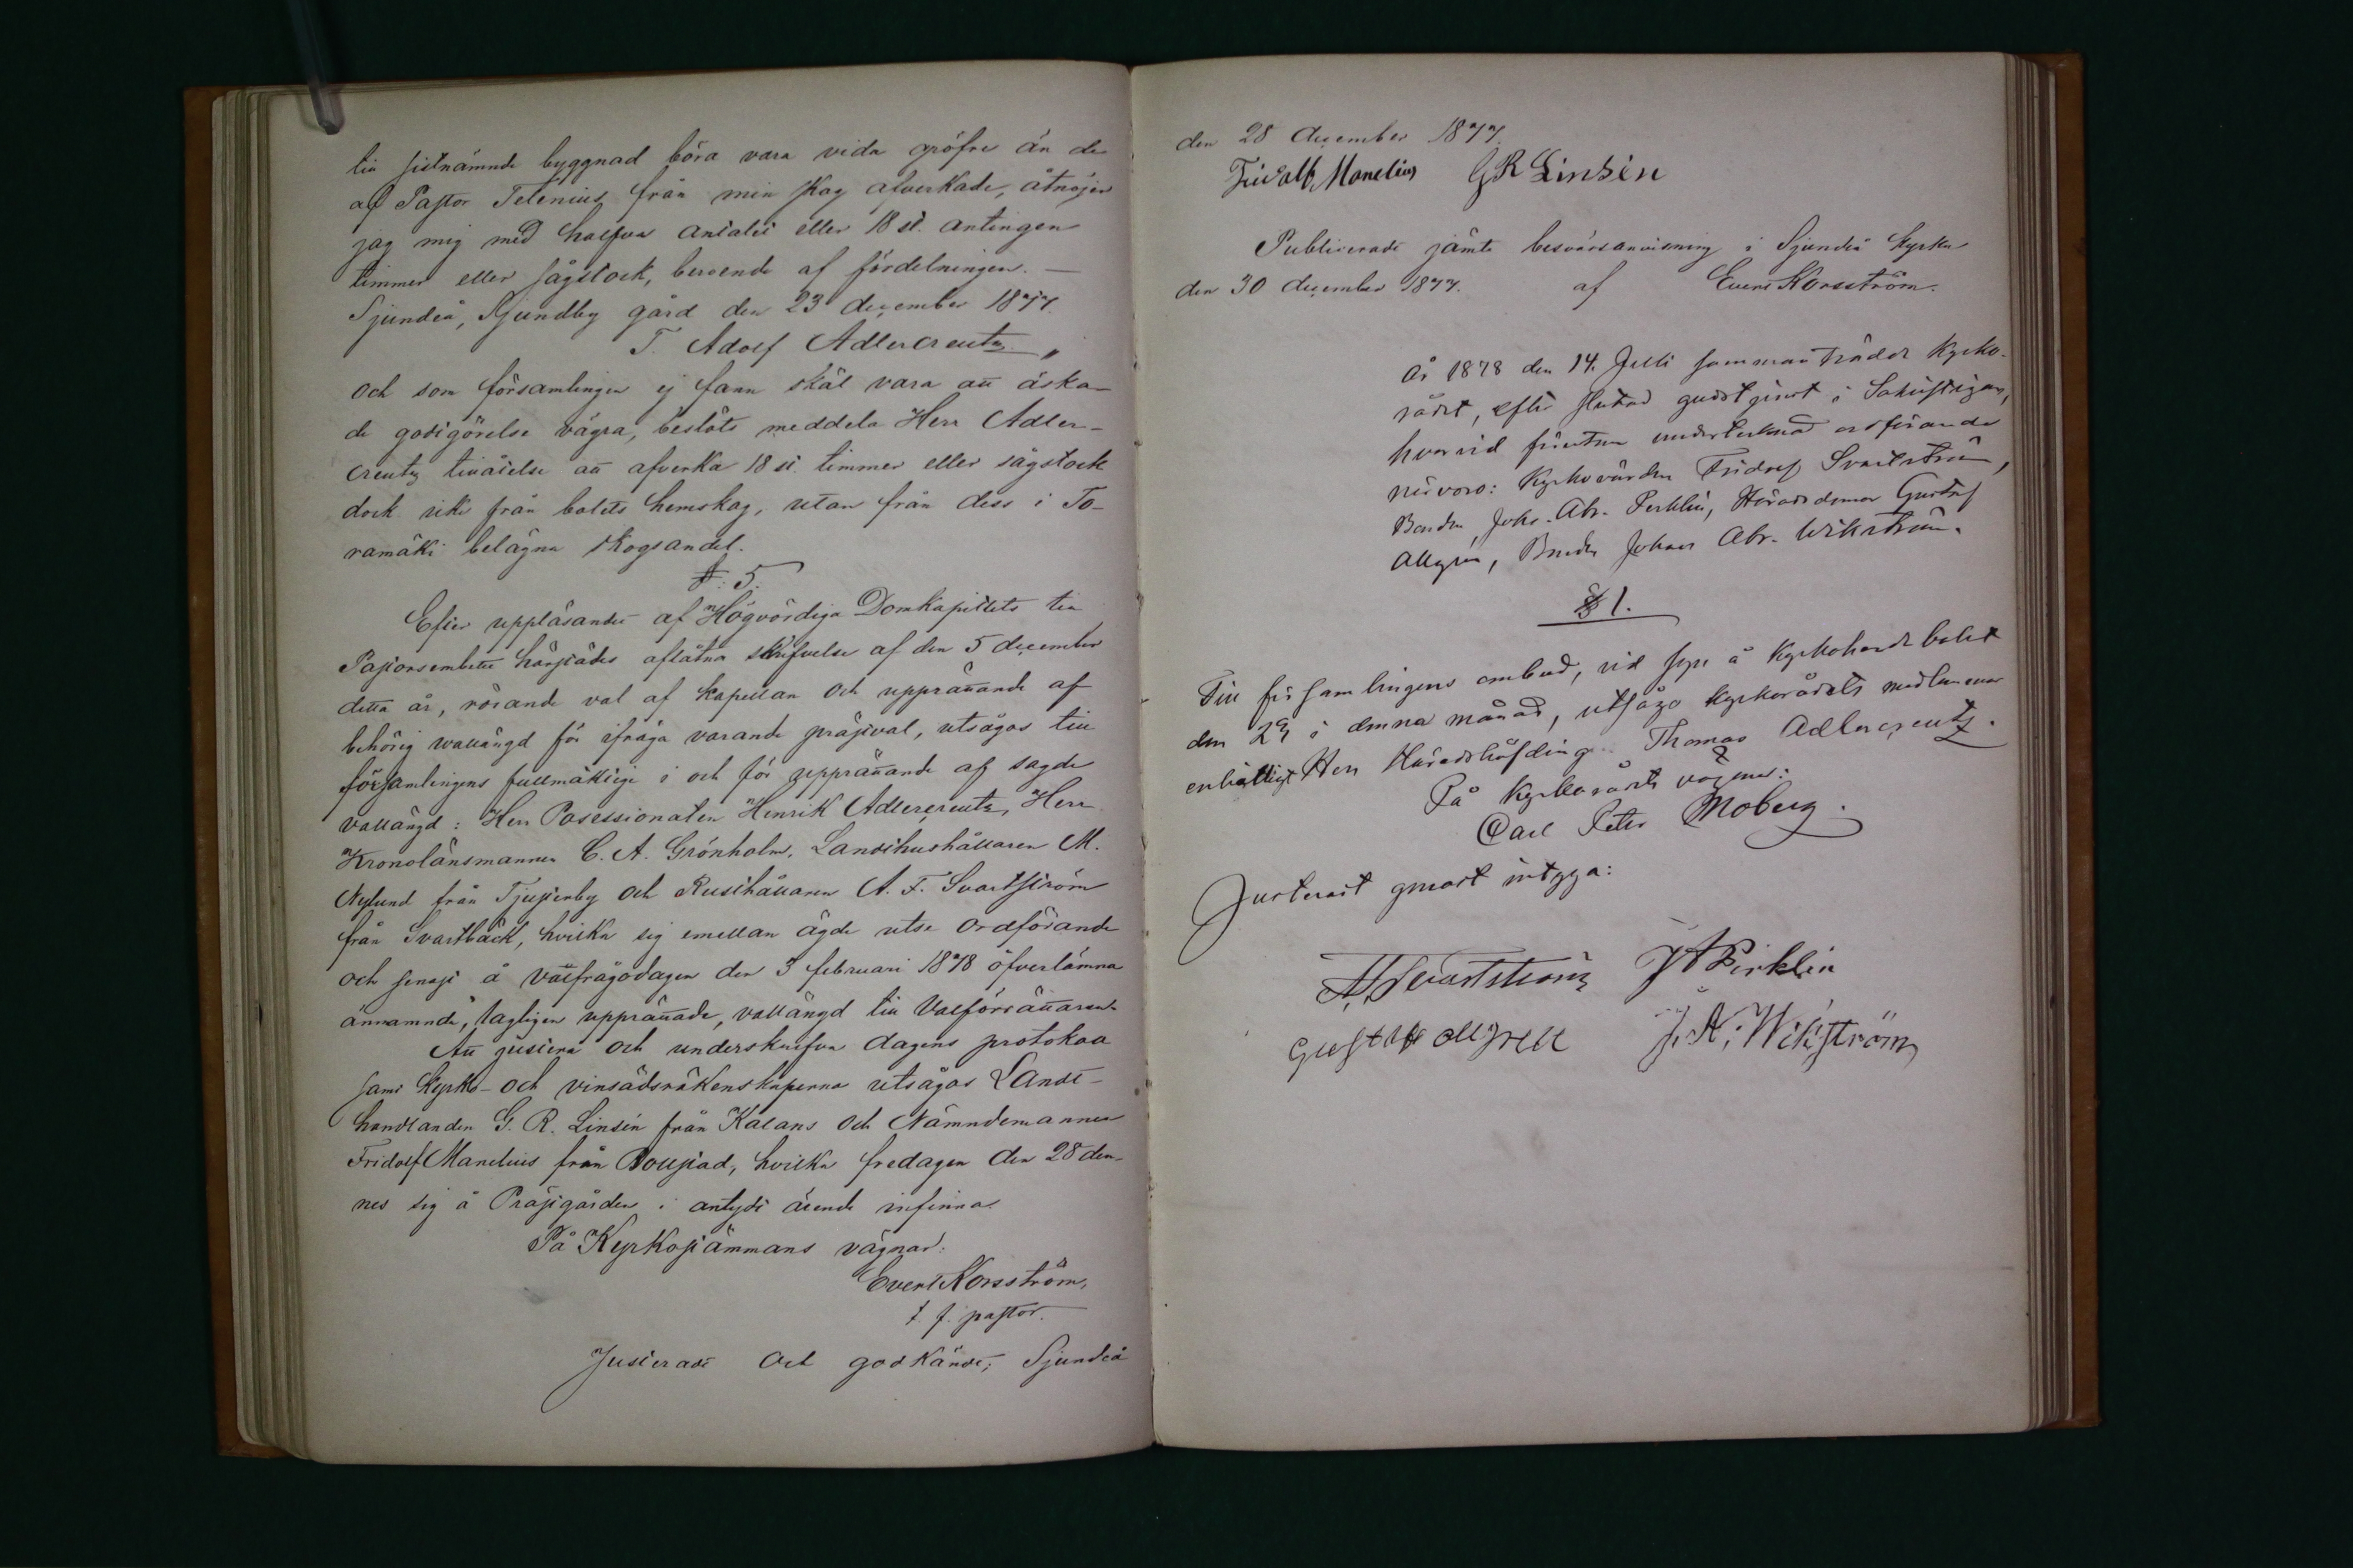 till sistnämnde byggnad böra vara vida gröfre än de
af Pastor Telenius från min skog afverkade, åtnöjer
jag mig med halfva antalet eller 18 st. antingen
timmer eller sågstock, beroende af fördelningen. —
Sjundeå, Sjundby gård den 23 december 1877.
T. Adolf Adlercreutz „
och som församlingen ej fann skäl vara att äska-
de godtgörelse vägra, beslöts meddela Herr Adler-
creutz tillåtelse att afverka 18 st. timmer eller sågstock
dock icke från bolets hemskog, utan från dess i To-
ramäki belägna skogsandel.
§: 5.
Efter uppläsandet af Högvördiga Domkapitlets till
Pastorsembetet härstädes aflåtna skrifvelse af den 5 december
detta år, rörande val af kapellan och upprättande af
behörig vallängd för ifråga varande prästval, utsågos till
församlingens fullmäktige i och för upprättande af sagde
vallängd: Herr Possessionaten Henrik Adlercreutz, Herr
Kronolänsmannen C. A. Grönholm, Landthushållaren M.
Nylund från Tjusterby och Rusthållaren A. F. Svartström
från Svartbäck, hvilka sig emellan ägde utse ordförande
och senast å valfrågodagen den 3 februari 1878 öfverlämna
ännämnde, lagligen upprättade, vallängd till Valförrättaren.
Att justera och underskrifva dagens protokoll
samt kyrko- och vinsädsräkenskaperna utsågos Landt-
handlanden G. R. Linsén från Kalans och Nämndemannen
Fridolf Manelius från Bollstad, hvilka fredagen den 28 den-
nes sig å Prästgården i antydt ärende infinna.
På Kyrkostämmans vägnar:
Evert Korsström,
t. f. pastor.
Justeradt och godkändt; Sjundeå
den 28 december 1877.
Fridolf Manelius G R Linsén
Publiceradt jämte besvärsanvisning i Sjundeå kyrka
den 30 december 1877. af Evert Korsström.
År 1878 den 14. Juli sammanträdde kyrko-
rådet, efter slutad gudstjenst i Sakristigan,
hvarvid förutom undertecknad ordförande
närvoro: Kyrkovärden Fridolf Svartström,
Bonden Joh. Abr. Perklén, Häradsdomar Gustaf
Allgren, Bonden Johan Abr. Wikström.
§ 1.
Till församlingens ombud, vid syn å kyrkoherdebolet
den 29 i denna månad, utsågo kyrkorådets medlemmar
enhälligt Herr Häradshöfding Thomas Adlercreutz.
På kyrkorådets vägnar:
Carl Peter Moberg.
Justeradt genast intyga:
A F Svartström J A Pirklén
Gustaf Allgren J. A. Wikström